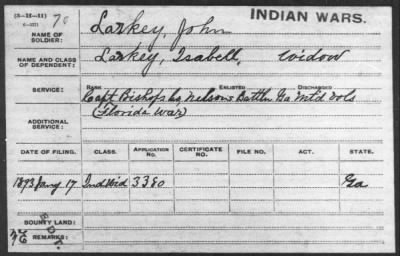 (3-25-11)
(6-337) 70
INDIAN WARS.
NAME OF SOLDIER: Larkey, John
NAME AND CLASS OF DEPENDENT: Larkey, Isabell, Widow
SERVICE: RANK ENLISTED DISCHARGED
Capt Bishops Co, Nelsons Battln Ga Mt'd Vols
ADDITIONAL SERVICE: (Florida War)
DATE OF FILING. CLASS. APPLICATION No. CERTIFICATE No. FILE NO. ACT. STATE.
1893 Jany 17 Ind Wid 3380 Ga
BOUNTY LAND:
REMARKS: